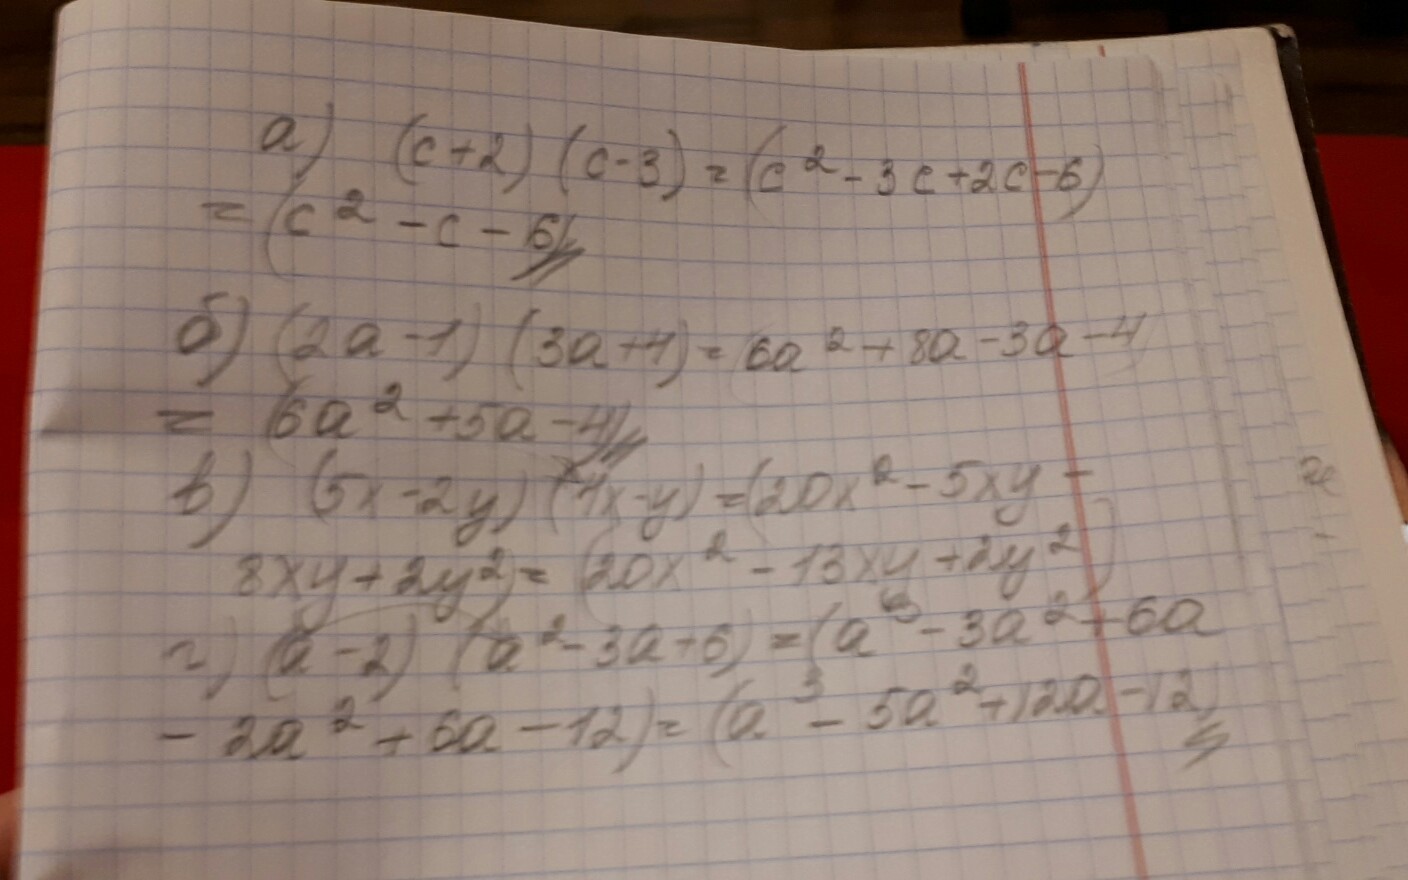 а) (c+2) (c-3) = (c² - 3c + 2c - 6)
= (c² - c - 6)
б) (2a - 1) (3a + 4) = (6a² + 8a - 3a - 4
= (6a² + 5a - 4)
в) (5x - 2y) (4x - y) = (20x² - 5xy -
8xy + 2y²) = (20x² - 13xy + 2y²)
г) (a - 2) (a² - 3a + 6) = (a³ - 3a² + 6a
- 2a² + 6a - 12) = (a³ - 5a² + 12a - 12)